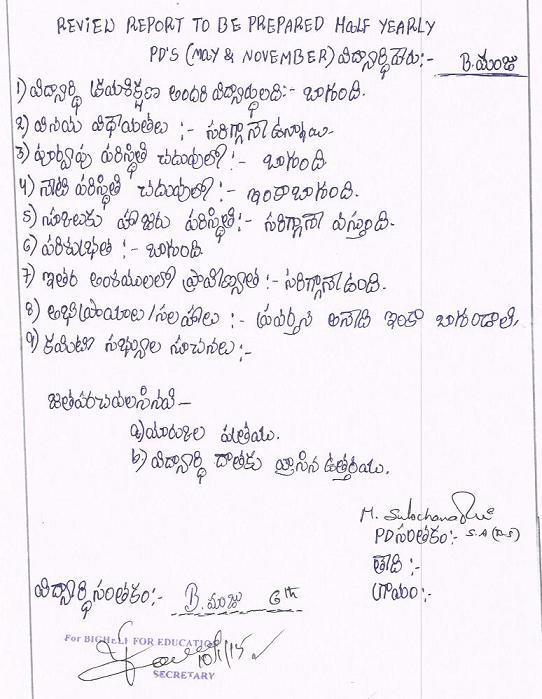 REVIEW REPORT TO BE PREPARED HALF YEARLY
PD'S (MAY & NOVEMBER) విద్యార్థి పేరు:- B. మంజు
1) విద్యార్థి క్రమశిక్షణ అందరి విద్యార్థులది:- బాగుంది.
2) వినయ విధేయతలు :- సరిగ్గానే ఉన్నాయి.
3) పూర్వపు పరిస్థితి చదువులో :- బాగుంది
4) నాటి పరిస్థితి చదువులో :- ఇంకా బాగుంది.
5) స్కూలుకు హాజరు పరిస్థితి :- సరిగ్గానే వస్తుంది.
6) పరిశుభ్రత :- బాగుంది.
7) ఇతర అంశములలో ప్రావిణ్యత :- సరిగ్గానే ఉంది.
8) అభిప్రాయాలు/సలహాలు :- ప్రవర్తన అనేది ఇంకా బాగుండాలి.
9) కమిటి సభ్యుల సూచనలు :-
జతపరచవలసినవి -
a) మార్కుల పత్రము.
b) విద్యార్థి దాతకు వ్రాసిన ఉత్తరము.
M. Sulochana
PD సంతకం:- S.A (P.S)
తేది :-
గ్రామం:-
విద్యార్థి సంతకం:- B. మంజు 6th
For BIGHELP FOR EDUCATION
10/1/15
SECRETARY